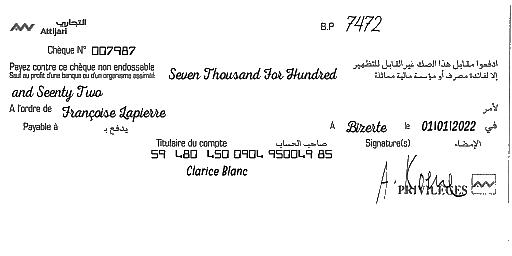 التجاري
Attijari
B.P 7472
Chèque N° 007987
Payez contre ce chèque non endossable
Sauf au profit d'une banque ou d'un organisme assimilé
Seven Thousand For Hundred
ادفعوا مقابل هذا الصك غير القابل للتظهير
إلا لفائدة مصرف أو مؤسسة مالية مماثلة
and Seenty Two
A l'ordre de Françoise Lapierre
لأمر
Payable à يدفع بـ
A Bizerte le 01/01/2022 في
Titulaire du compte صاحب الحساب
Signature(s) الإمضاء
59 480 450 0904 950049 85
Clarice Blanc
PRIVILEGES